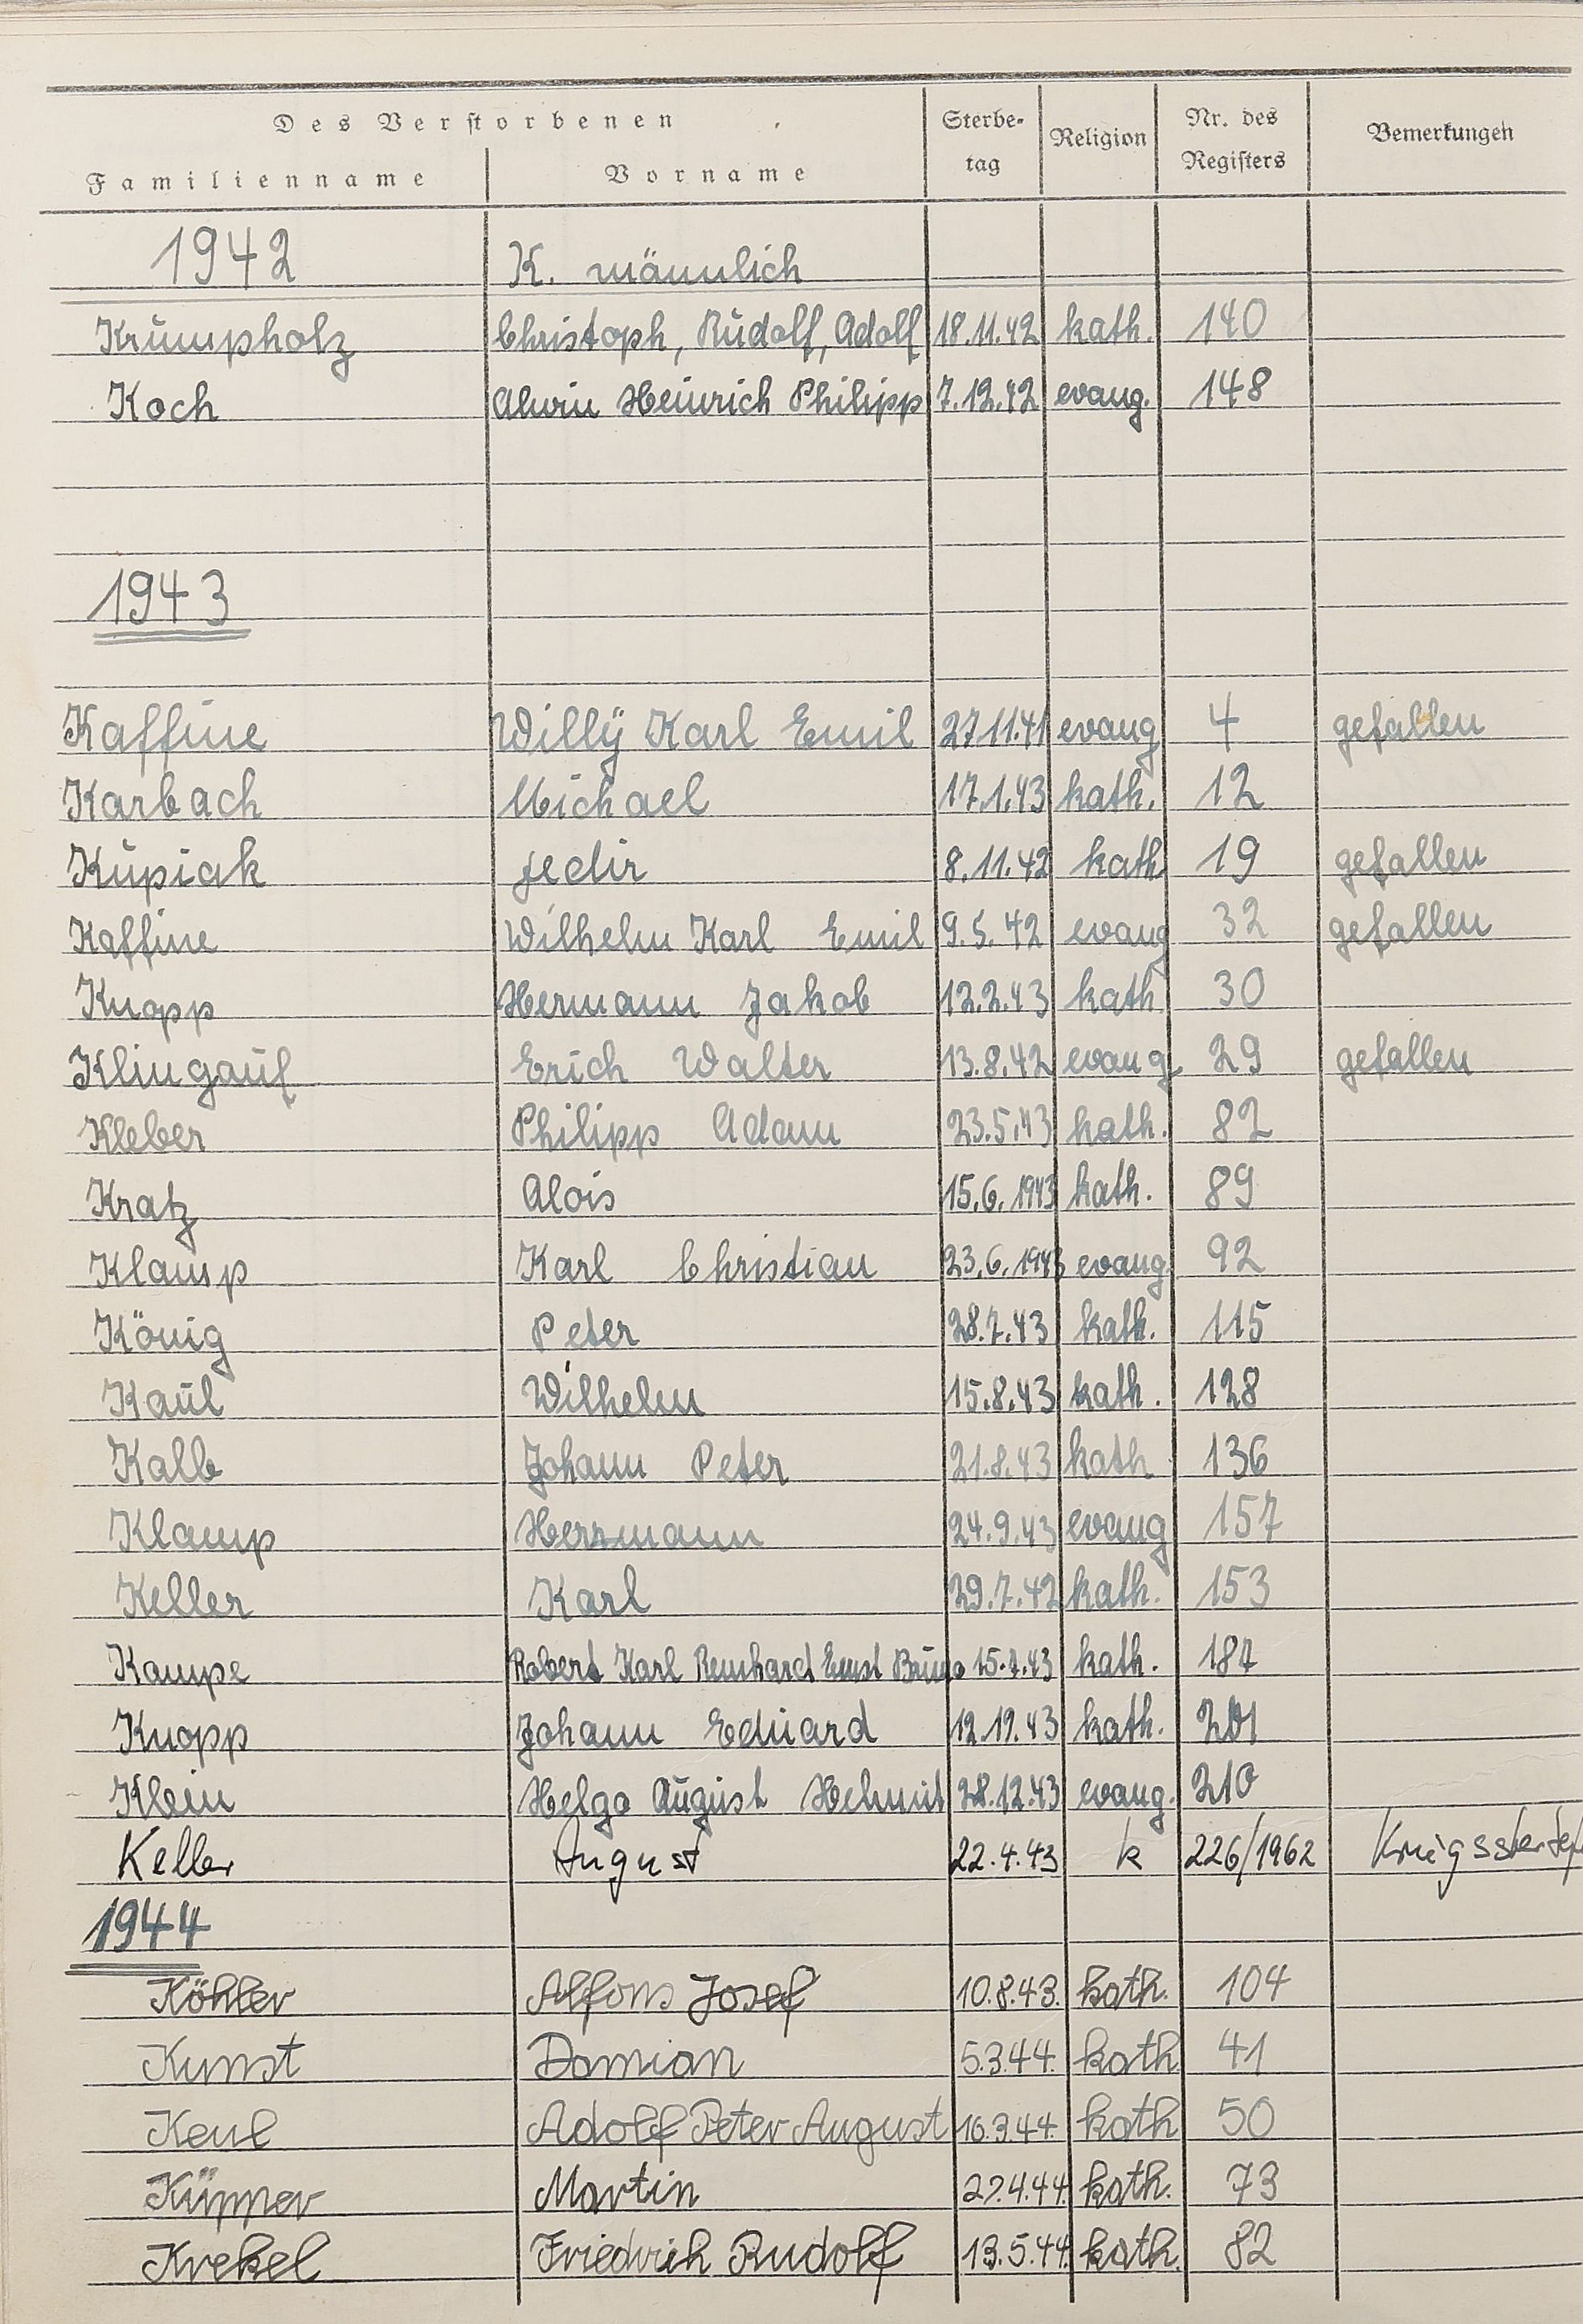 Des Verstorbenen Sterbe- Religion Nr. des Bemerkungen
Familienname Vorname tag Registers
1942 K. männlich
Krumpholz Christoph, Rudolf, Adolf 18.11.42 kath. 140
Koch Alwin Heinrich Philipp 7.12.42 evang. 148
1943
Kaffine Willÿ Karl Emil 27.11.41 evang 4 gefallen
Karbach Michael 17.1.43 kath. 12
Kupiak Fedir 8.11.42 kath 19 gefallen
Kaffine Wilhelm Karl Emil 9.5.42 evang 32 gefallen
Knopp Hermann Jakob 12.2.43 kath 30
Klingauf Erich Walter 13.8.42 evang. 29 gefallen
Kleber Philipp Adam 23.5.43 kath. 82
Kratz Alois 15.6.1943 kath. 89
Klamp Karl Christian 23.6.1943 evang. 92
König Peter 28.7.43 kath. 115
Kaul Wilhelm 15.8.43 kath. 128
Kalb Johann Peter 21.8.43 kath 136
Klamp Hermann 24.9.43 evang 157
Keller Karl 29.7.42 kath. 153
Kampe Robert Karl Reinhard Ernst Bruno kath. 187
Knopp Johann Eduard kath. 201
Klein August Helmut 28.12.43 evang. 210
Keller August 22.4.43 k 226/1962
1944
Köhler Alfons Josef 10.8.43. kath. 104
Kunst Damian 5.3.44. kath. 41
Keul Adolf Peter August 16.3.44. kath 50
Küpper Martin 27.4.44. kath. 73
Krekel Friedrich Rudolf 13.5.44. kath. 82